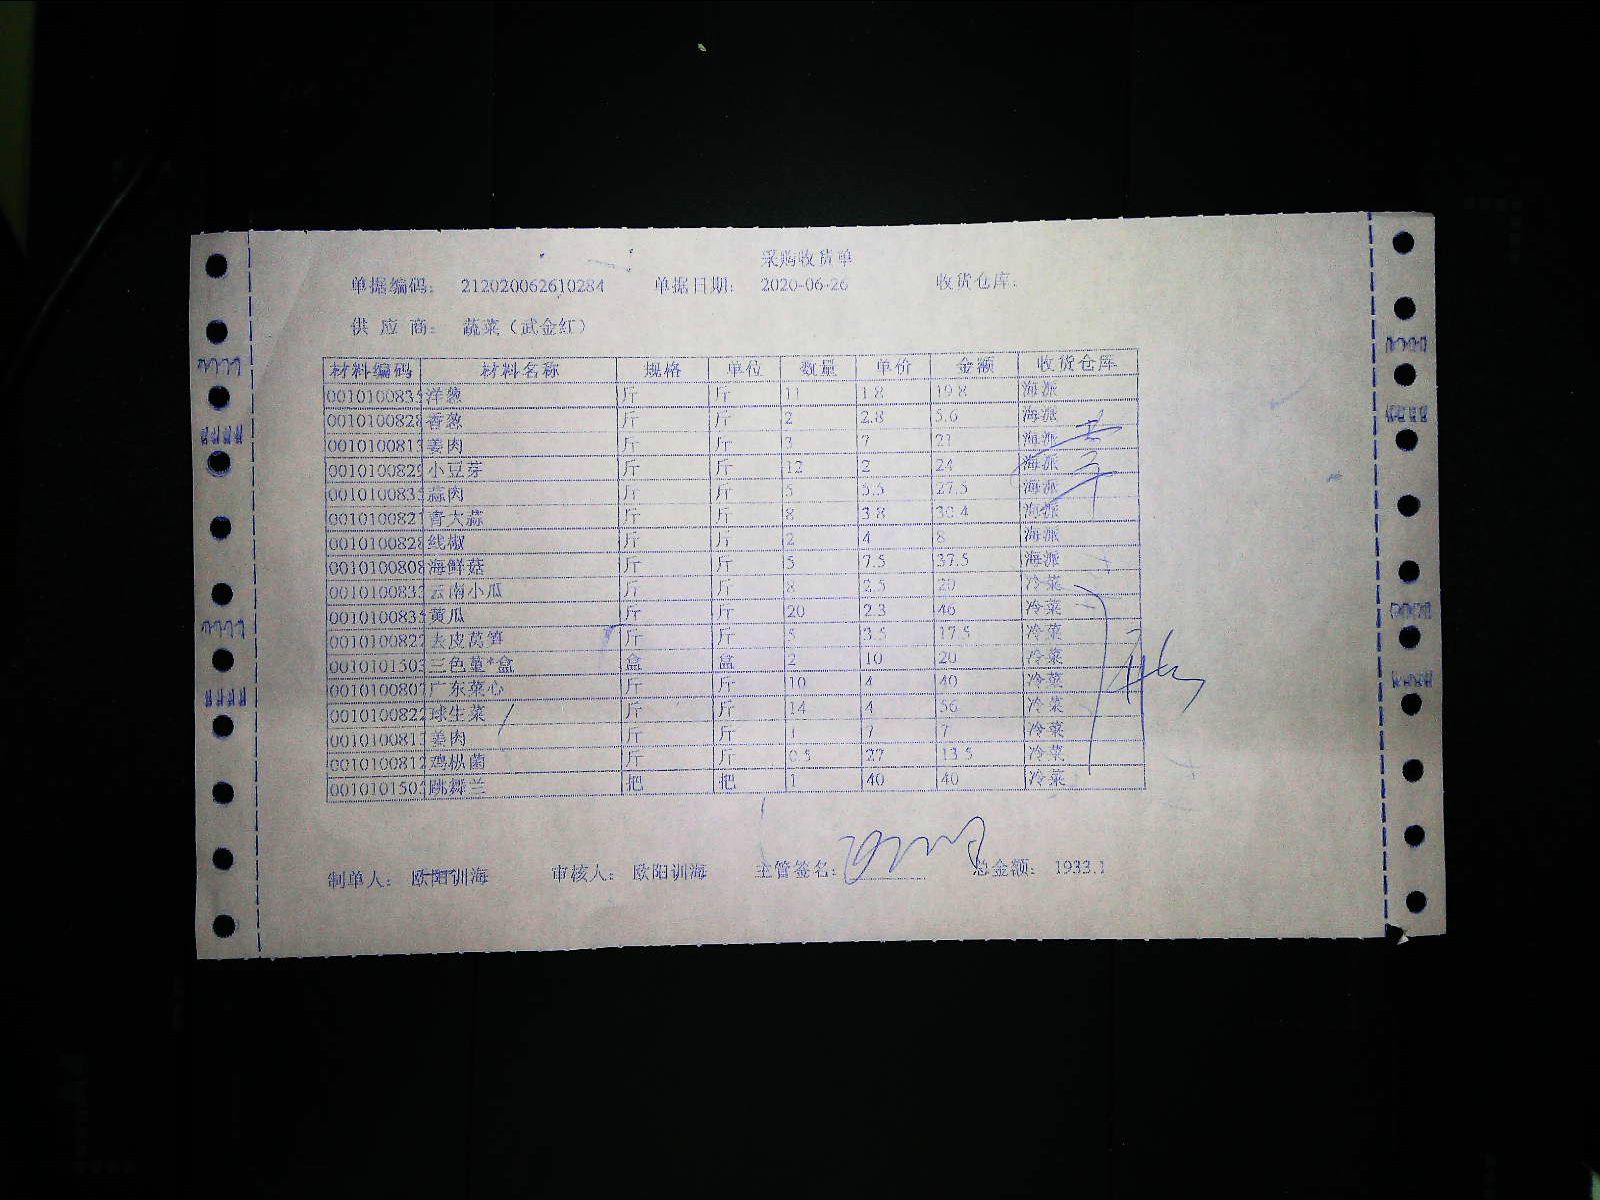 采购收货单
单据编码： 212020062610284 单据日期： 2020-06-26 收货仓库：
供 应 商： 蔬菜（武金红）
材料编码 材料名称 规格 单位 数量 单价 金额 收货仓库
0010100835 洋葱 斤 斤 11 1.8 19.8 海派
0010100828 香葱 斤 斤 2 2.8 5.6 海派
0010100813 姜肉 斤 斤 3 7 21 海派
0010100829 小豆芽 斤 斤 12 2 24 海派
0010100835 蒜肉 斤 斤 5 5.5 27.5 海派
0010100821 青大蒜 斤 斤 8 3.8 30.4 海派
0010100828 线椒 斤 斤 2 4 8 海派
0010100808 海鲜菇 斤 斤 5 7.5 37.5 海派
0010100833 云南小瓜 斤 斤 8 2.5 20 冷菜
0010100835 黄瓜 斤 斤 20 2.3 46 冷菜
0010100822 去皮莴笋 斤 斤 5 3.5 17.5 冷菜
0010101503 三色堇*盒 盒 盒 2 10 20 冷菜
0010100807 广东菜心 斤 斤 10 4 40 冷菜
0010100822 球生菜 斤 斤 14 4 56 冷菜
0010100813 姜肉 斤 斤 1 7 7 冷菜
0010100812 鸡枞菌 斤 斤 0.5 27 13.5 冷菜
0010101503 跳舞兰 把 把 1 40 40 冷菜
制单人： 欧阳训海 审核人： 欧阳训海 主管签名： 总金额： 1933.1